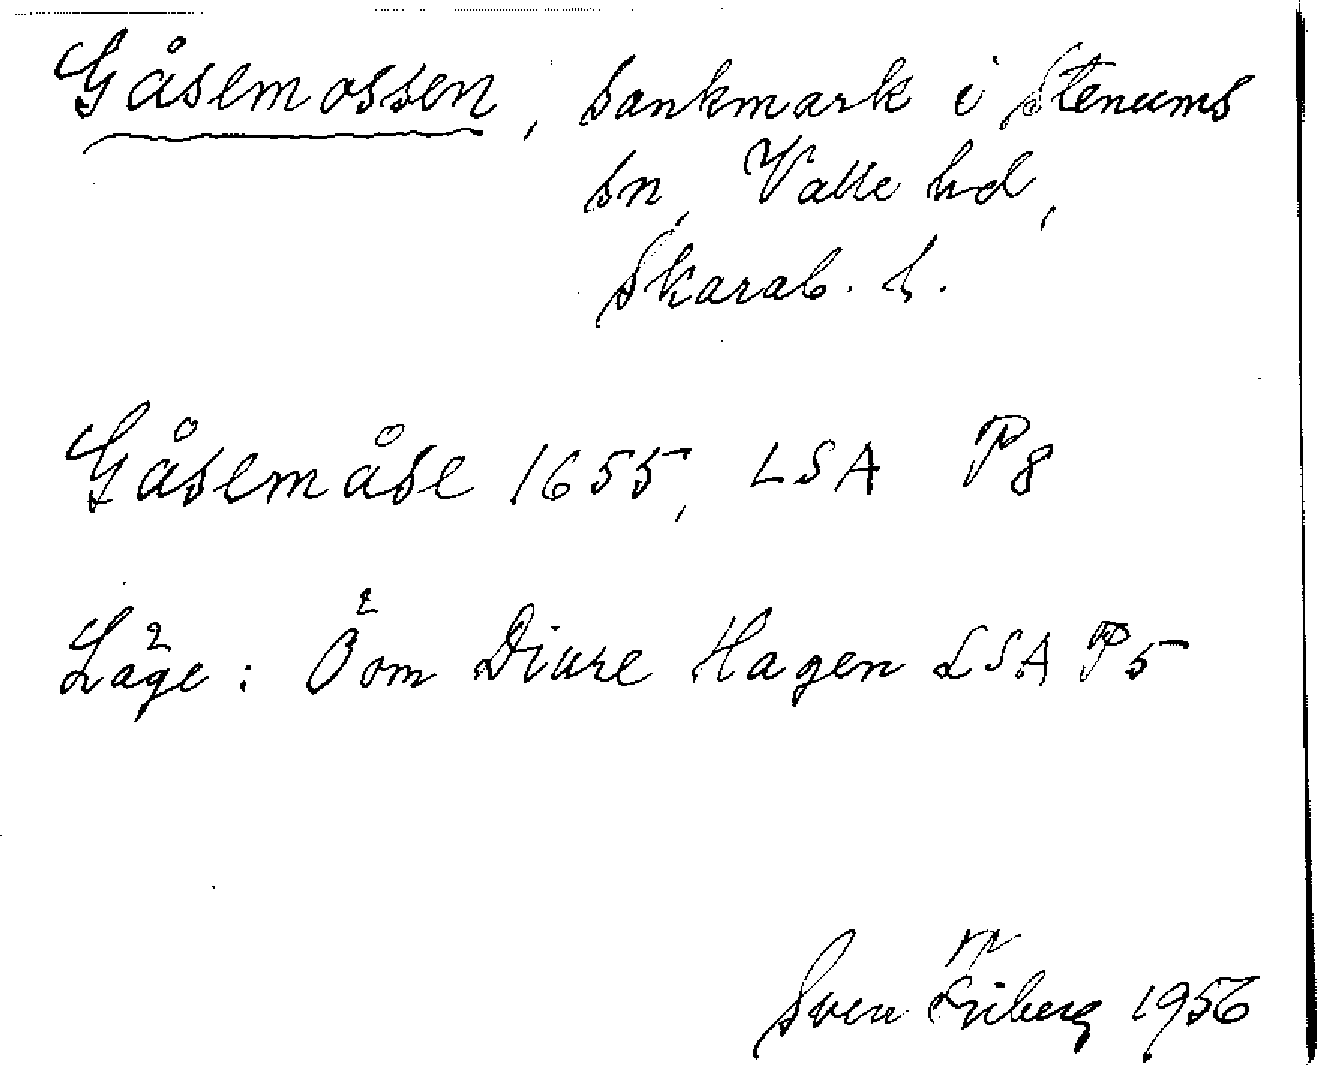 Gåsemossen, sankmark i Stenums
sn, Valle hd,
Skarab. l.
Gåsemåse 1655, LSA P8
Läge: Ö om Diure Hagen LSA P5
Sven Friberg 1956